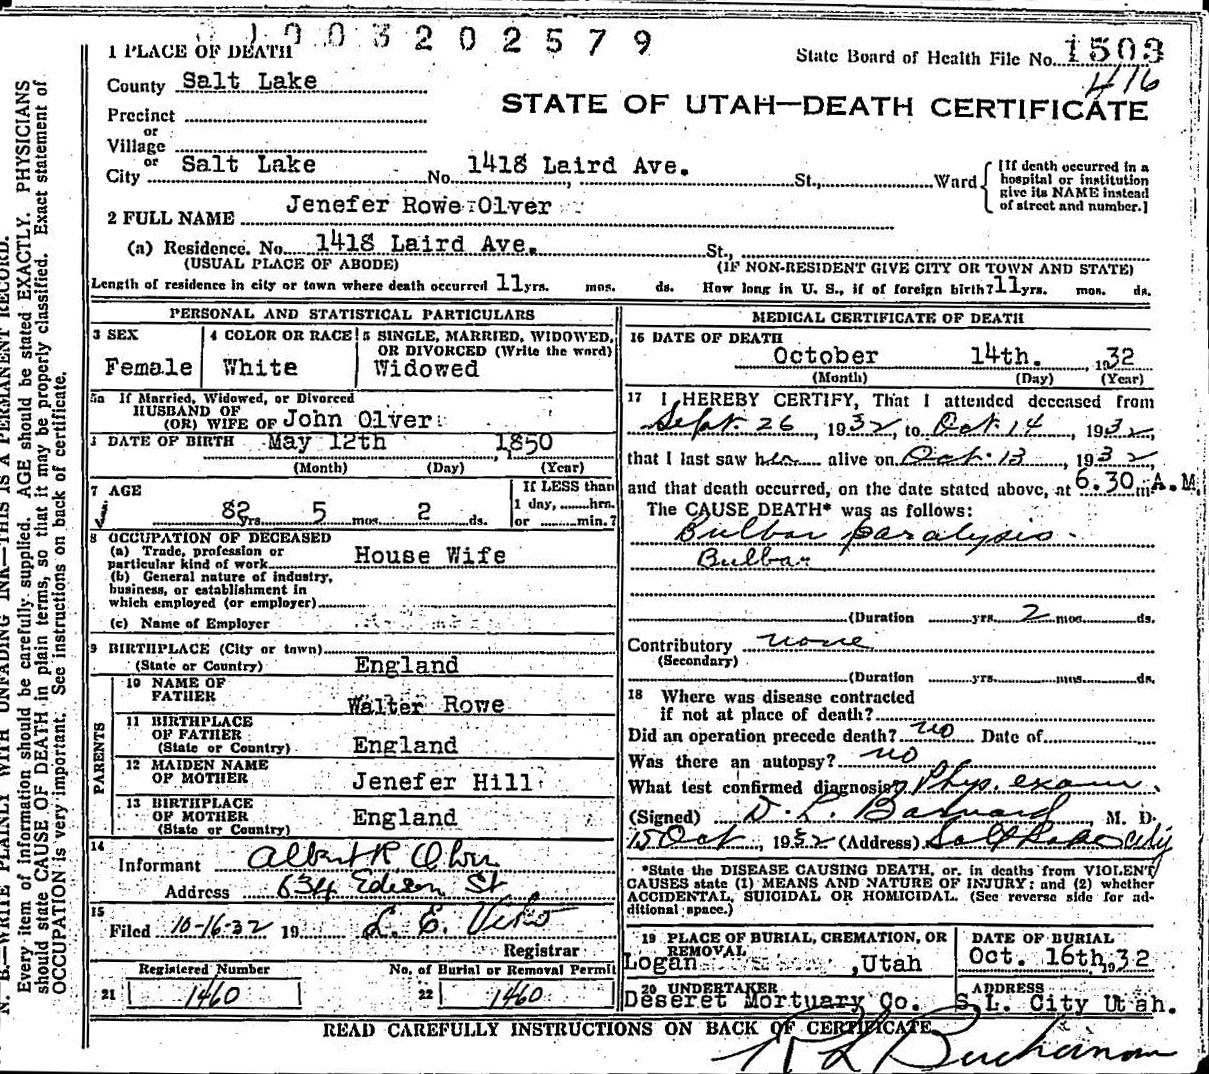 1003202579
1 PLACE OF DEATH
State Board of Health File No. 1503
416
County Salt Lake
STATE OF UTAH—DEATH CERTIFICATE
Precinct
or
Village
or
City Salt Lake No. 1418 Laird Ave. St., Ward
[If death occurred in a
hospital or institution
give its NAME instead
of street and number.]
2 FULL NAME Jenefer Rowe Olver
(a) Residence. No. 1418 Laird Ave. St.,
(USUAL PLACE OF ABODE) (IF NON-RESIDENT GIVE CITY OR TOWN AND STATE)
Length of residence in city or town where death occurred 11 yrs. mos. ds. How long in U. S., if of foreign birth? 11 yrs. mos. ds.
PERSONAL AND STATISTICAL PARTICULARS
3 SEX
Female
4 COLOR OR RACE
White
5 SINGLE, MARRIED, WIDOWED,
OR DIVORCED (Write the word)
Widowed
5a If Married, Widowed, or Divorced
HUSBAND OF
(OR) WIFE OF John Olver
DATE OF BIRTH May 12th 1850
(Month) (Day) (Year)
7 AGE
82 yrs. 5 mos. 2 ds.
If LESS than
1 day, hrs.
or min.?
8 OCCUPATION OF DECEASED
(a) Trade, profession or
particular kind of work House Wife
(b) General nature of industry,
business, or establishment in
which employed (or employer)
(c) Name of Employer
9 BIRTHPLACE (City or town)
(State or Country) England
PARENTS
10 NAME OF
FATHER Walter Rowe
11 BIRTHPLACE
OF FATHER
(State or Country) England
12 MAIDEN NAME
OF MOTHER Jenefer Hill
13 BIRTHPLACE
OF MOTHER
(State or Country) England
14
Informant Albert R Olver
Address 634 Edison St
15
Filed 10-16-32 19 L. E. Viko
Registrar
Registered Number
21 1460
No. of Burial or Removal Permit
22 1460
MEDICAL CERTIFICATE OF DEATH
16 DATE OF DEATH
October 14th. 1932
(Month) (Day) (Year)
17 I HEREBY CERTIFY, That I attended deceased from
Sept. 26, 1932, to Oct. 14, 1932,
that I last saw her alive on Oct. 13, 1932,
and that death occurred, on the date stated above, at 6.30 m A.M.
The CAUSE DEATH* was as follows:
Bulbar paralysis.
Bulbar
(Duration yrs. 2 mos. ds.
Contributory none
(Secondary)
(Duration yrs. mos. ds.
18 Where was disease contracted
if not at place of death?
Did an operation precede death? no Date of
Was there an autopsy? no
What test confirmed diagnosis? Phys. exam.
(Signed) D. L. Barnard, M. D.
15 Oct, 1932 (Address) Salt Lake City
*State the DISEASE CAUSING DEATH, or, in deaths from VIOLENT
CAUSES state (1) MEANS AND NATURE OF INJURY: and (2) whether
ACCIDENTAL, SUICIDAL OR HOMICIDAL. (See reverse side for ad-
ditional space.)
19 PLACE OF BURIAL, CREMATION, OR
REMOVAL
Logan ,Utah
DATE OF BURIAL
Oct. 16th, 1932
20 UNDERTAKER
Deseret Mortuary Co.
ADDRESS
S.L. City Utah.
READ CAREFULLY INSTRUCTIONS ON BACK OF CERTIFICATE
R L Buchanan
N. B.—WRITE PLAINLY WITH UNFADING INK—THIS IS A PERMANENT RECORD.
Every item of information should be carefully supplied. AGE should be stated EXACTLY. PHYSICIANS
should state CAUSE OF DEATH in plain terms, so that it may be properly classified. Exact statement of
OCCUPATION is very important. See instructions on back of certificate.